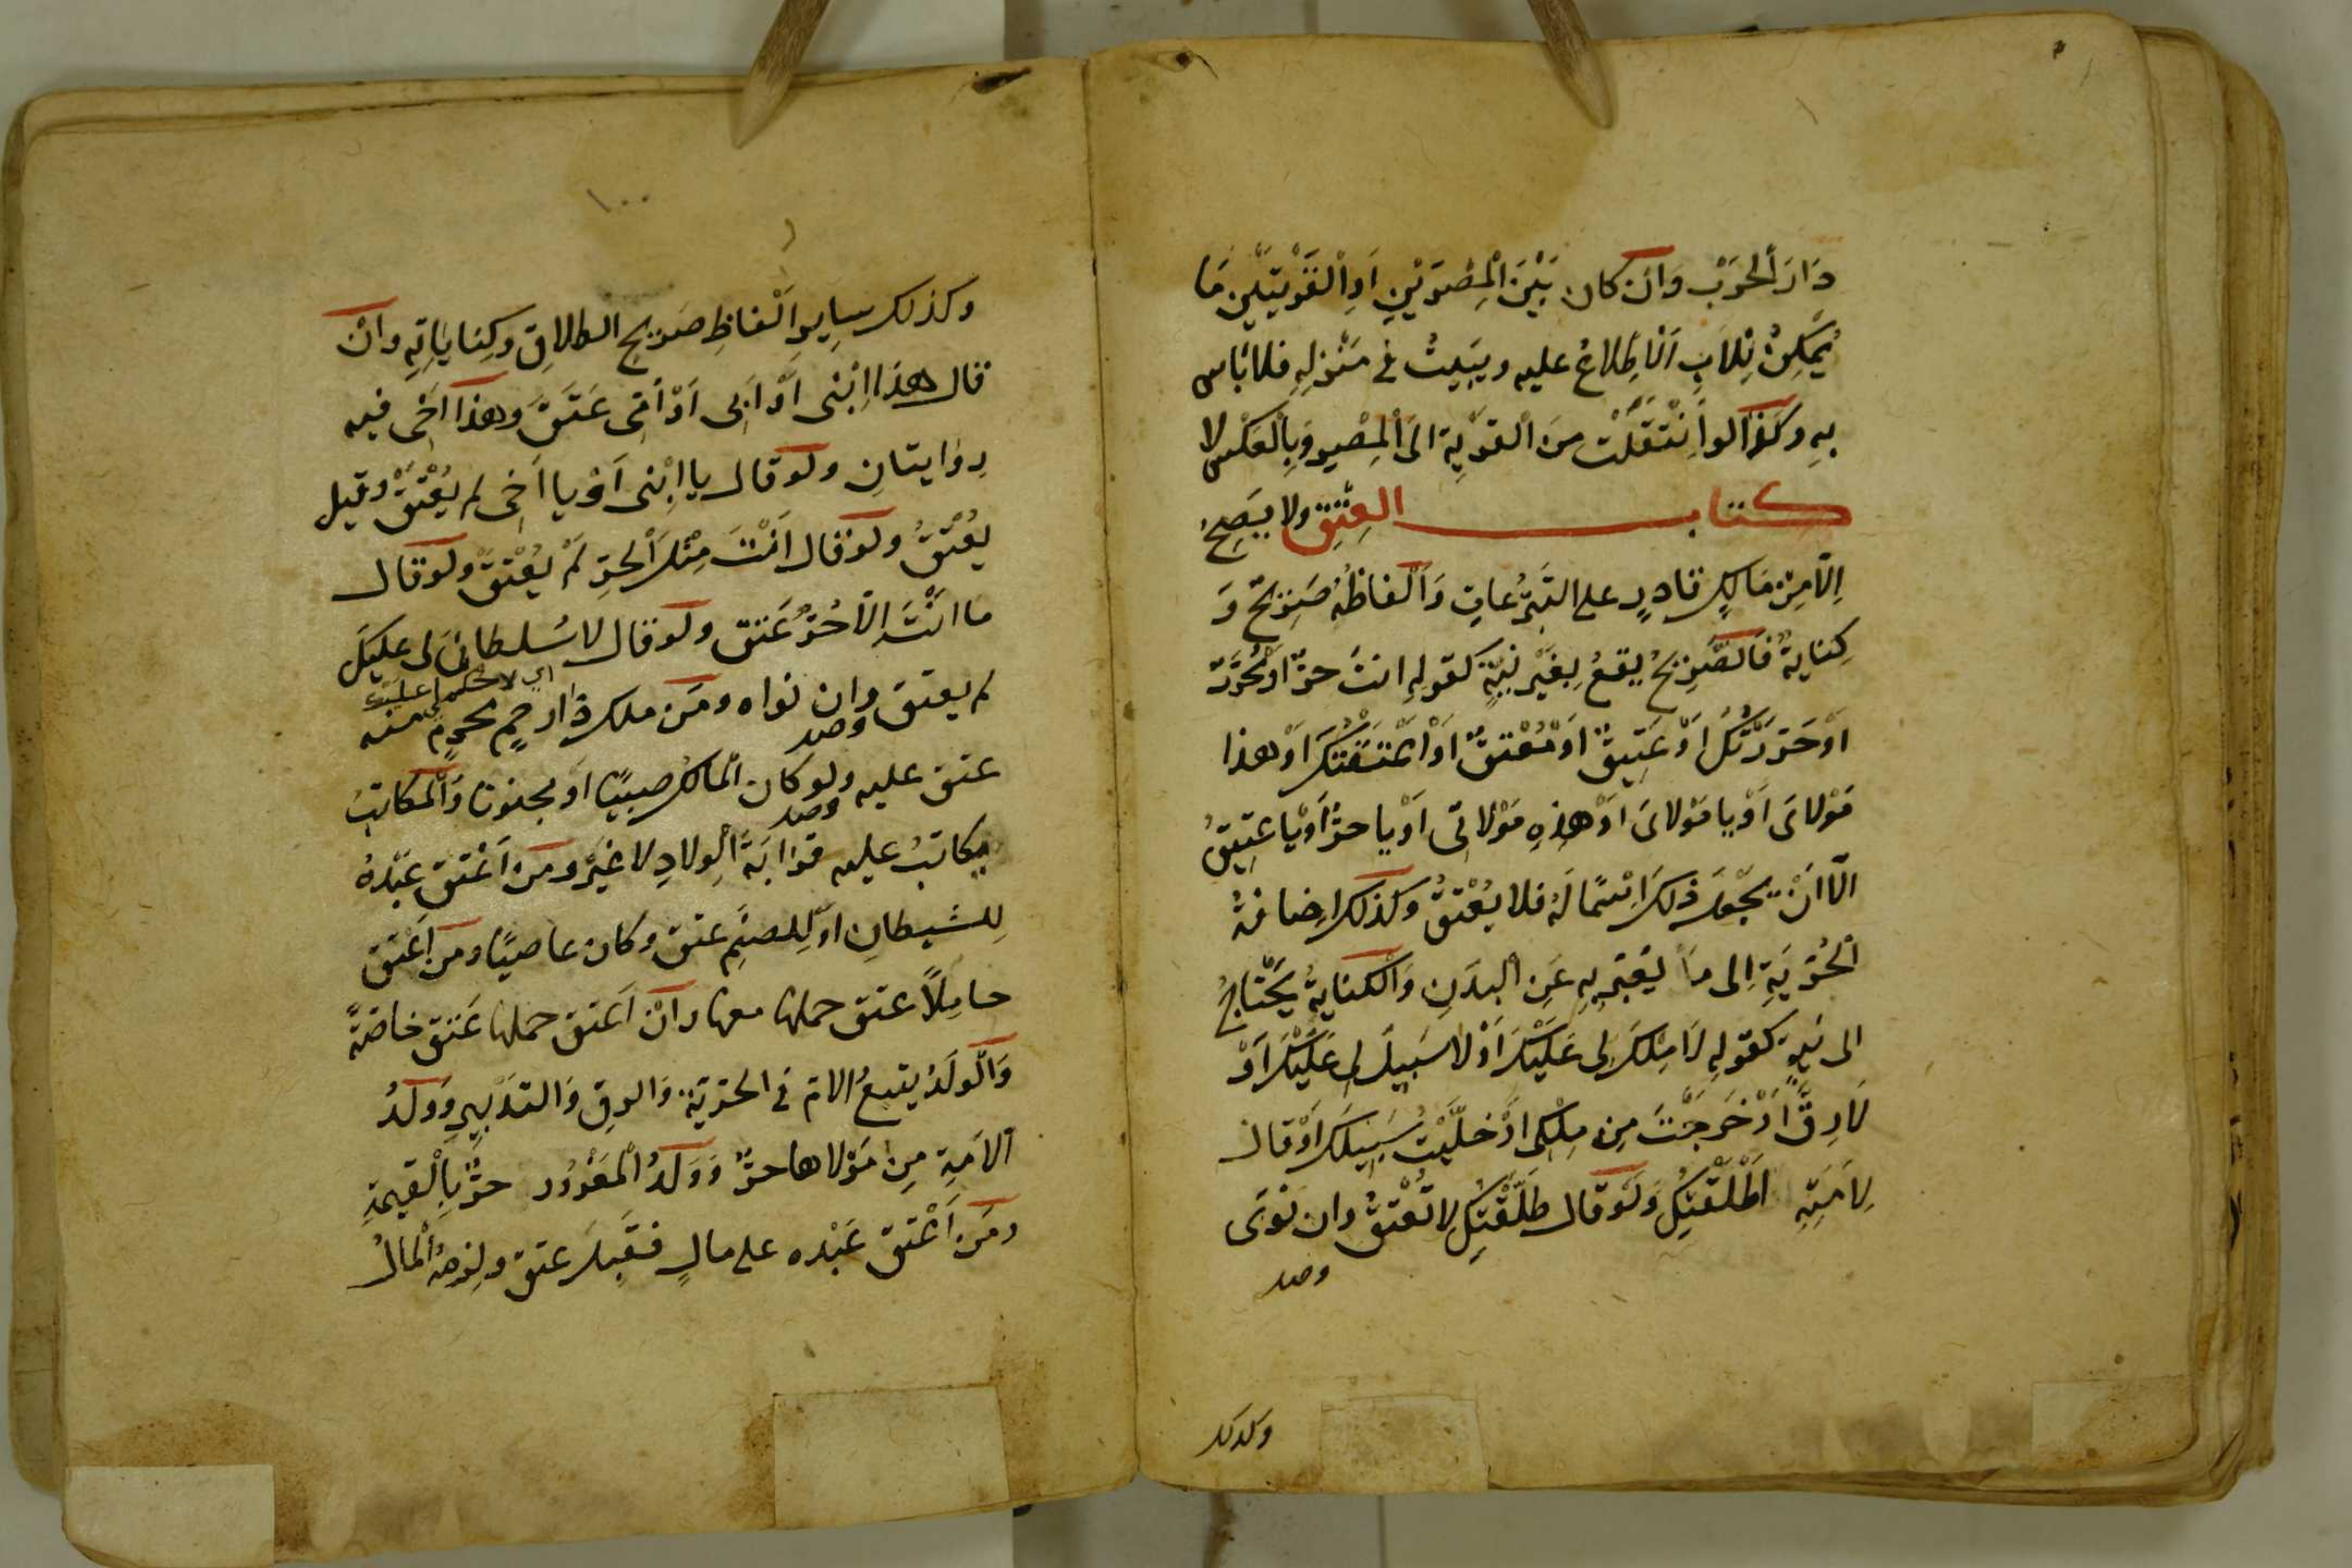 دَارَ الحَرْب وَانْ كان بَيْنَ الْمِصْرَيْنِ اَوِ الْقَرْيَتَيْنِ مَا
يُمكِنُ لِلاَبِ الاطِّلاعُ عليه ويَبِيتُ في مَنْزِلِهِ فلا بَاس
بِهِ وكذا لو انْتَقَلَتْ مِنَ الْقَرْيَةِ الَى الْمِصْرِ وَبِالْعَكْسِ لا
كتاب العِتْقِ ولا يَصِحُّ
اِلّا مِنْ مَالِكٍ قادِرٍ على التَّبَرُّعاتِ وَاَلْفاظُهُ صَرِيْحٌ وَ
كِنايةٌ فَالصَّرِيْحُ يقعُ بِغَيْرِ نِيَّةٍ كقولِهِ انتَ حرٌّ اَوْ مُحَرَّرٌ
اَوْ حَرَّرْتُكَ اَوْ عَتِيْقٌ اَوْ مُعْتَقٌ اَوْ اَعْتَقْتُكَ اَوْ هذا
مَوْلاىَ اَوْ يا مَوْلاىَ اَوْ هذِهِ مَوْلاتى اَوْ يا حرُّ اَوْ يا عَتِيقُ
الّا اَنْ يجْعَلَ ذلكَ اِسْمًا لَهُ فلا يُعْتَقُ وَكذلك اِضافةُ
الْحُرِّيَةِ اِلى مَا يُعَبَّرُ بِهِ عَنِ الْبدَنِ وَالْكنايةُ يَحْتَاجُ
الى نِيةٍ كقولِهِ لَا مِلْكَ لِى عَلَيْكَ اَوْ لا سَبِيلَ لِى عَلَيْكَ اَوْ
لَا رِقَّ اَوْ خَرَجْتَ مِن مِلْكِى اَوْ خَلَّيْتُ سَبِيْلَكَ اَوْ قالَ
لِاَمَتِهِ اَطْلَقْتُكِ وَلَوْ قال طَلَّقْتُكِ لا تُعْتَقُ وان نَوَى
وصد
وكذلك
١٠٠
وكذلك سايِرُ اَلْفاظِ صَرِيحِ الطلاقِ وكِناياتِهِ وانْ
قال هذا اِبْنى اَوْ اَبى اَوْ اُمّى عَتَقَ وهذا اَخى فيه
رِوَايتانِ ولو قال يا اِبْنى اَوْ يا اَخى لم يُعْتَقْ وقيل
يُعْتَقُ ولَوْ قال اَنْتَ مِثْلُ الْحُرِّ لَمْ يُعْتَقْ ولو قال
ما اَنْتَ الّا حُرٌّ عَتَقَ ولو قال لا سُلطانَ لى عليكَ
اى لا حكم لى عليك
لم يعتقْ وان نواه ومَن ملك ذا رحِمٍ محرمٍ منه
وصد
عتق عليه ولو كان المالك صبيًّا او مجنونا وَالْمكاتَبُ
وصد
يكاتبُ عليه قرابَةُ الْوِلادِ لا غَيْرُ ومن اَعْتَقَ عَبْدَهُ
لِلشيطانِ اَوْ لِلصنَمِ عتق وكان عاصيًا ومن اَعْتَقَ
حامِلاً عتق حملها معها وانْ اَعتق حملها عَتَقَ خاصّةً
وَالْولَدُ يتبعُ الامّ فى الحرّيّةِ وَالرِقِّ وَالتدْبِيرِ وَوَلَدُ
الْاَمَةِ مِنْ مَوْلاها حرٌّ وَوَلَدُ الْمَغْرُورِ حرٌّ بِالْقيمةِ
ومَن اَعْتَقَ عَبْده على مالٍ فقَبِلَ عتق ولزمهُ الْمالُ